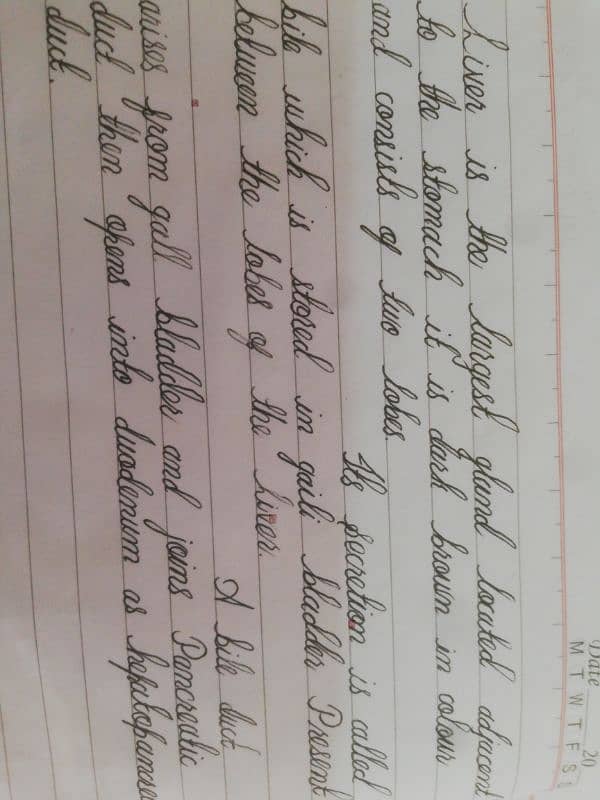 Date 20
M T W T F S
Liver is the largest gland located adjacent
to the stomach it is dark brown in colour
and consists of two lobes.
Its secretion is called
bile which is stored in gall bladder Present
between the lobes of the Liver.
A bile duct
arises from gall bladder and joins Pancreatic
duct then opens into duodenum as
duct.